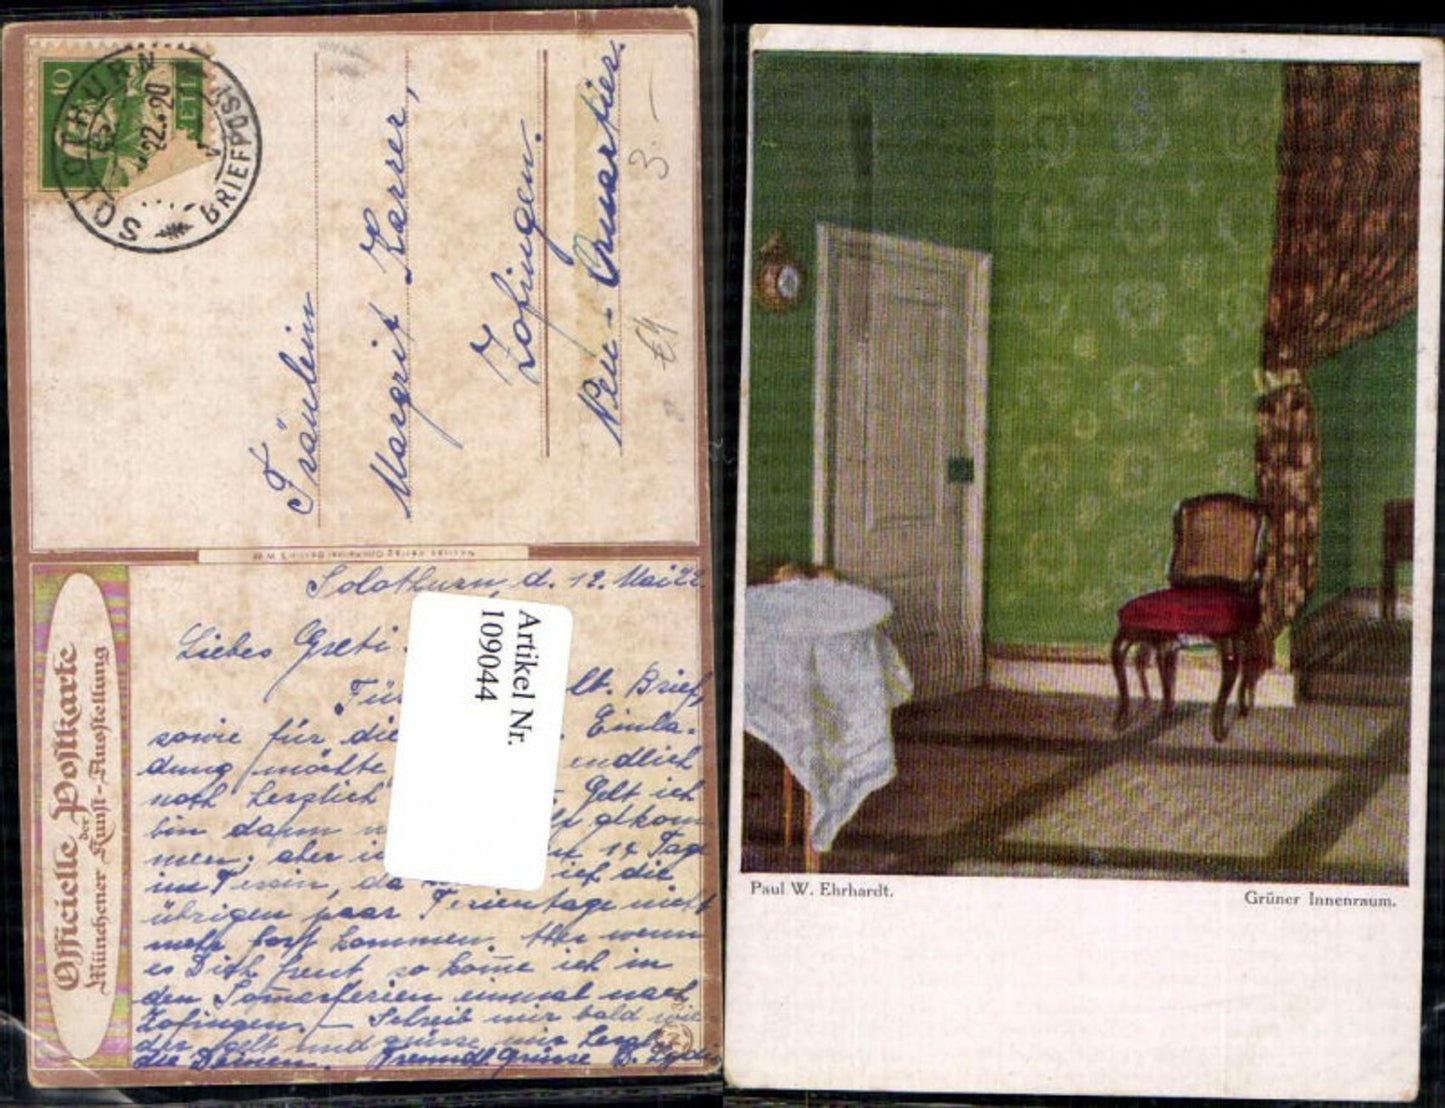 10
SOLOTHURN
22.20
BRIEFPOST
Fräulein
Margrit Karrer,
Zofingen.
Neu-Quartier
3.-
€4
Officielle Postkarte
der
Münchener Kunst-Ausstellung
Solothurn, d. 12. Mai 22
Liebes Greti
Für lt. Brief,
sowie für die Einla-
dung möchte endlich
noch herzlich Gelt ich
bin dann gekom
men; aber 14 Tage
im Tessin, da ich die
übrigen paar Ferientage nicht
mehr fort kommen. Aber wenn
es Dich freut so kome ich in
den Somerferien einmal nach
Zofingen. – Schreib mir bald wie
der gelt und grüsse mir herzl.
die Deinen. Freundl. Grüsse
Artikel Nr.
109044
Paul W. Ehrhardt.
Grüner Innenraum.